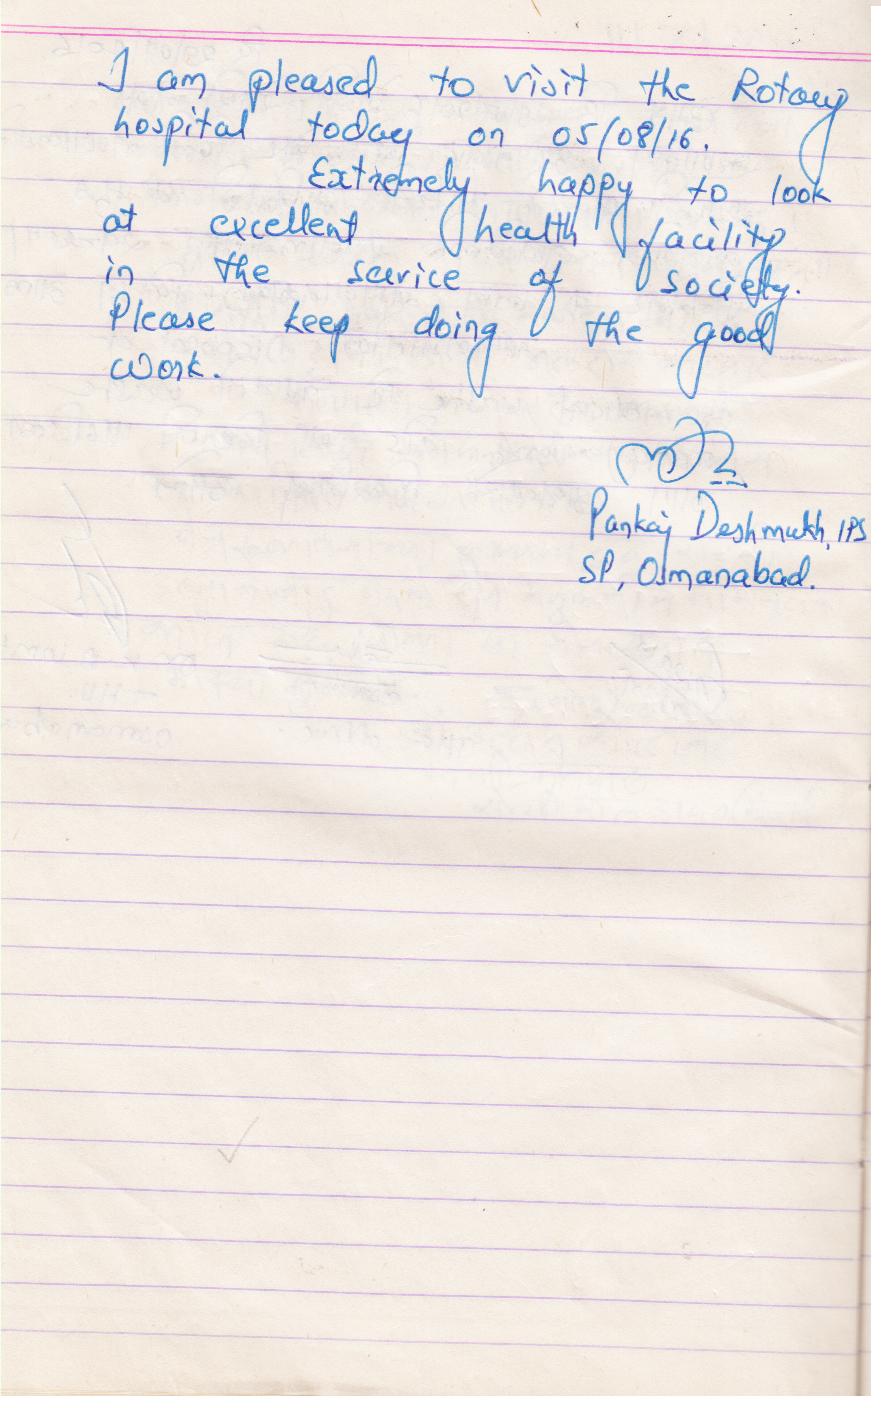 I am pleased to visit the Rotary
hospital today on 05/08/16.
Extremely happy to look
at excellent health facility
in the service of society.
Please keep doing the good
work.
Pankaj Deshmukh, IPS
SP, Osmanabad.